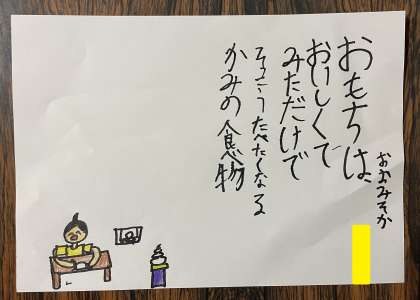 おおみそか
おもちは、
おいしくて
みただけで
そっこうたべたくなる
かみの食べ物